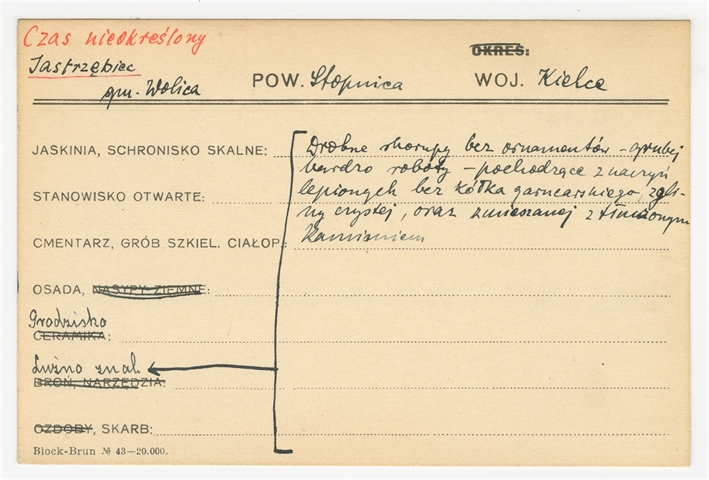 Czas nieokreślony
OKRES:
Jastrzębiec
gm. Wolica
POW. Stopnica WOJ. Kielce
JASKINIA, SCHRONISKO SKALNE: Drobne skorupy bez ornamentów – grubej
bardzo roboty – pochodzące z naczyń
STANOWISKO OTWARTE: lepionych bez kółka garncarskiego, z gli-
ny czystej, oraz zmieszanej z tłuczonym
CMENTARZ, GRÓB SZKIEL. CIAŁOP.: Kamieniem
OSADA, NASYPY ZIEMNE:
Grodzisko
CERAMIKA:
Luźno znal.
BROŃ, NARZĘDZIA:
OZDOBY, SKARB:
Block-Brun № 43—20.000.